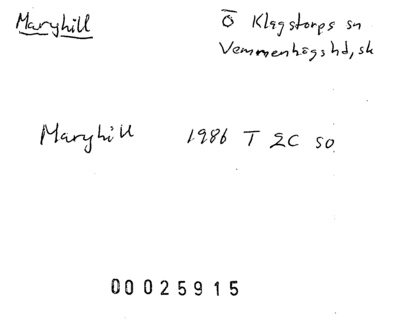 Maryhill
Ö Klagstorps sn
Vemmenhögs hd, sk
Maryhill 1986 T 2C SO
00025915